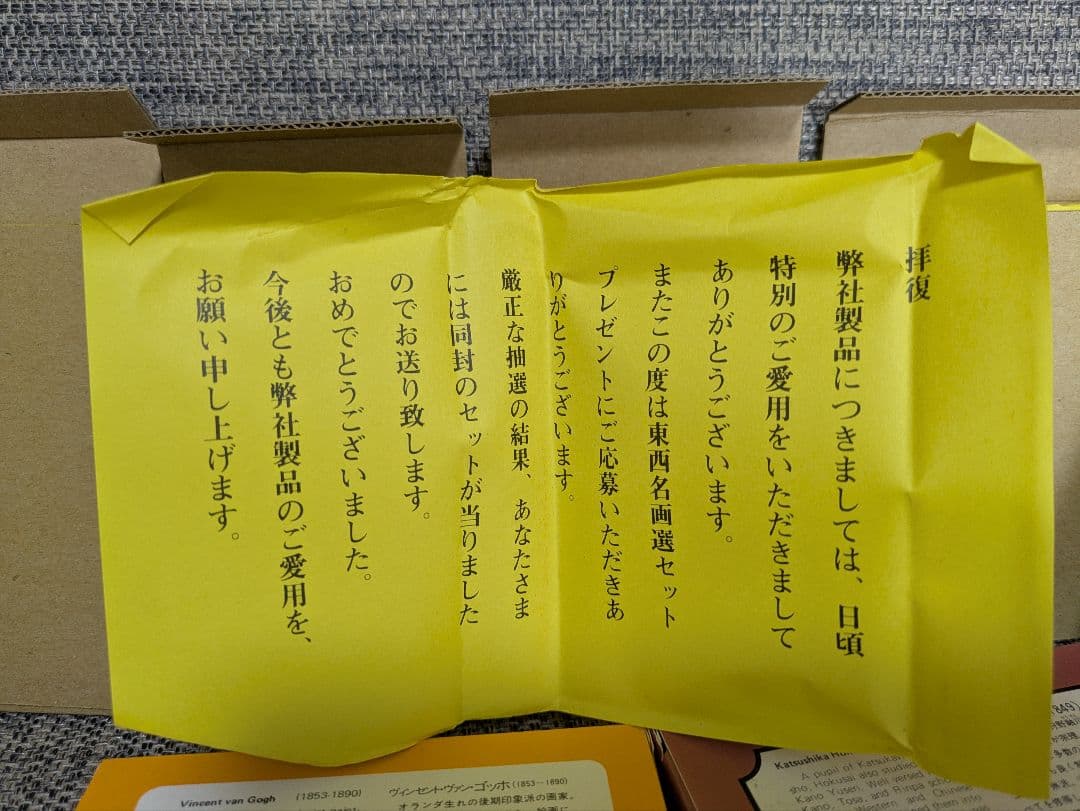 拝復
弊社製品につきましては、日頃
特別のご愛用をいただきまして
ありがとうございます。
またこの度は東西名画選セット
プレゼントにご応募いただきあ
りがとうございます。
厳正な抽選の結果、あなたさま
には同封のセットが当りました
のでお送り致します。
おめでとうございました。
今後とも弊社製品のご愛用を、
お願い申し上げます。
Vincent van Gogh (1853-1890)
ヴィンセント・ヴァン・ゴッホ(1853—1690)
オランダ生れの後期印象派の画家。
849)
Katsushika
A pupil of Katsuka
sho, Hokusai also studied
Kano Yusen. Well versed
Kano, Tosa, and Rinpa schools